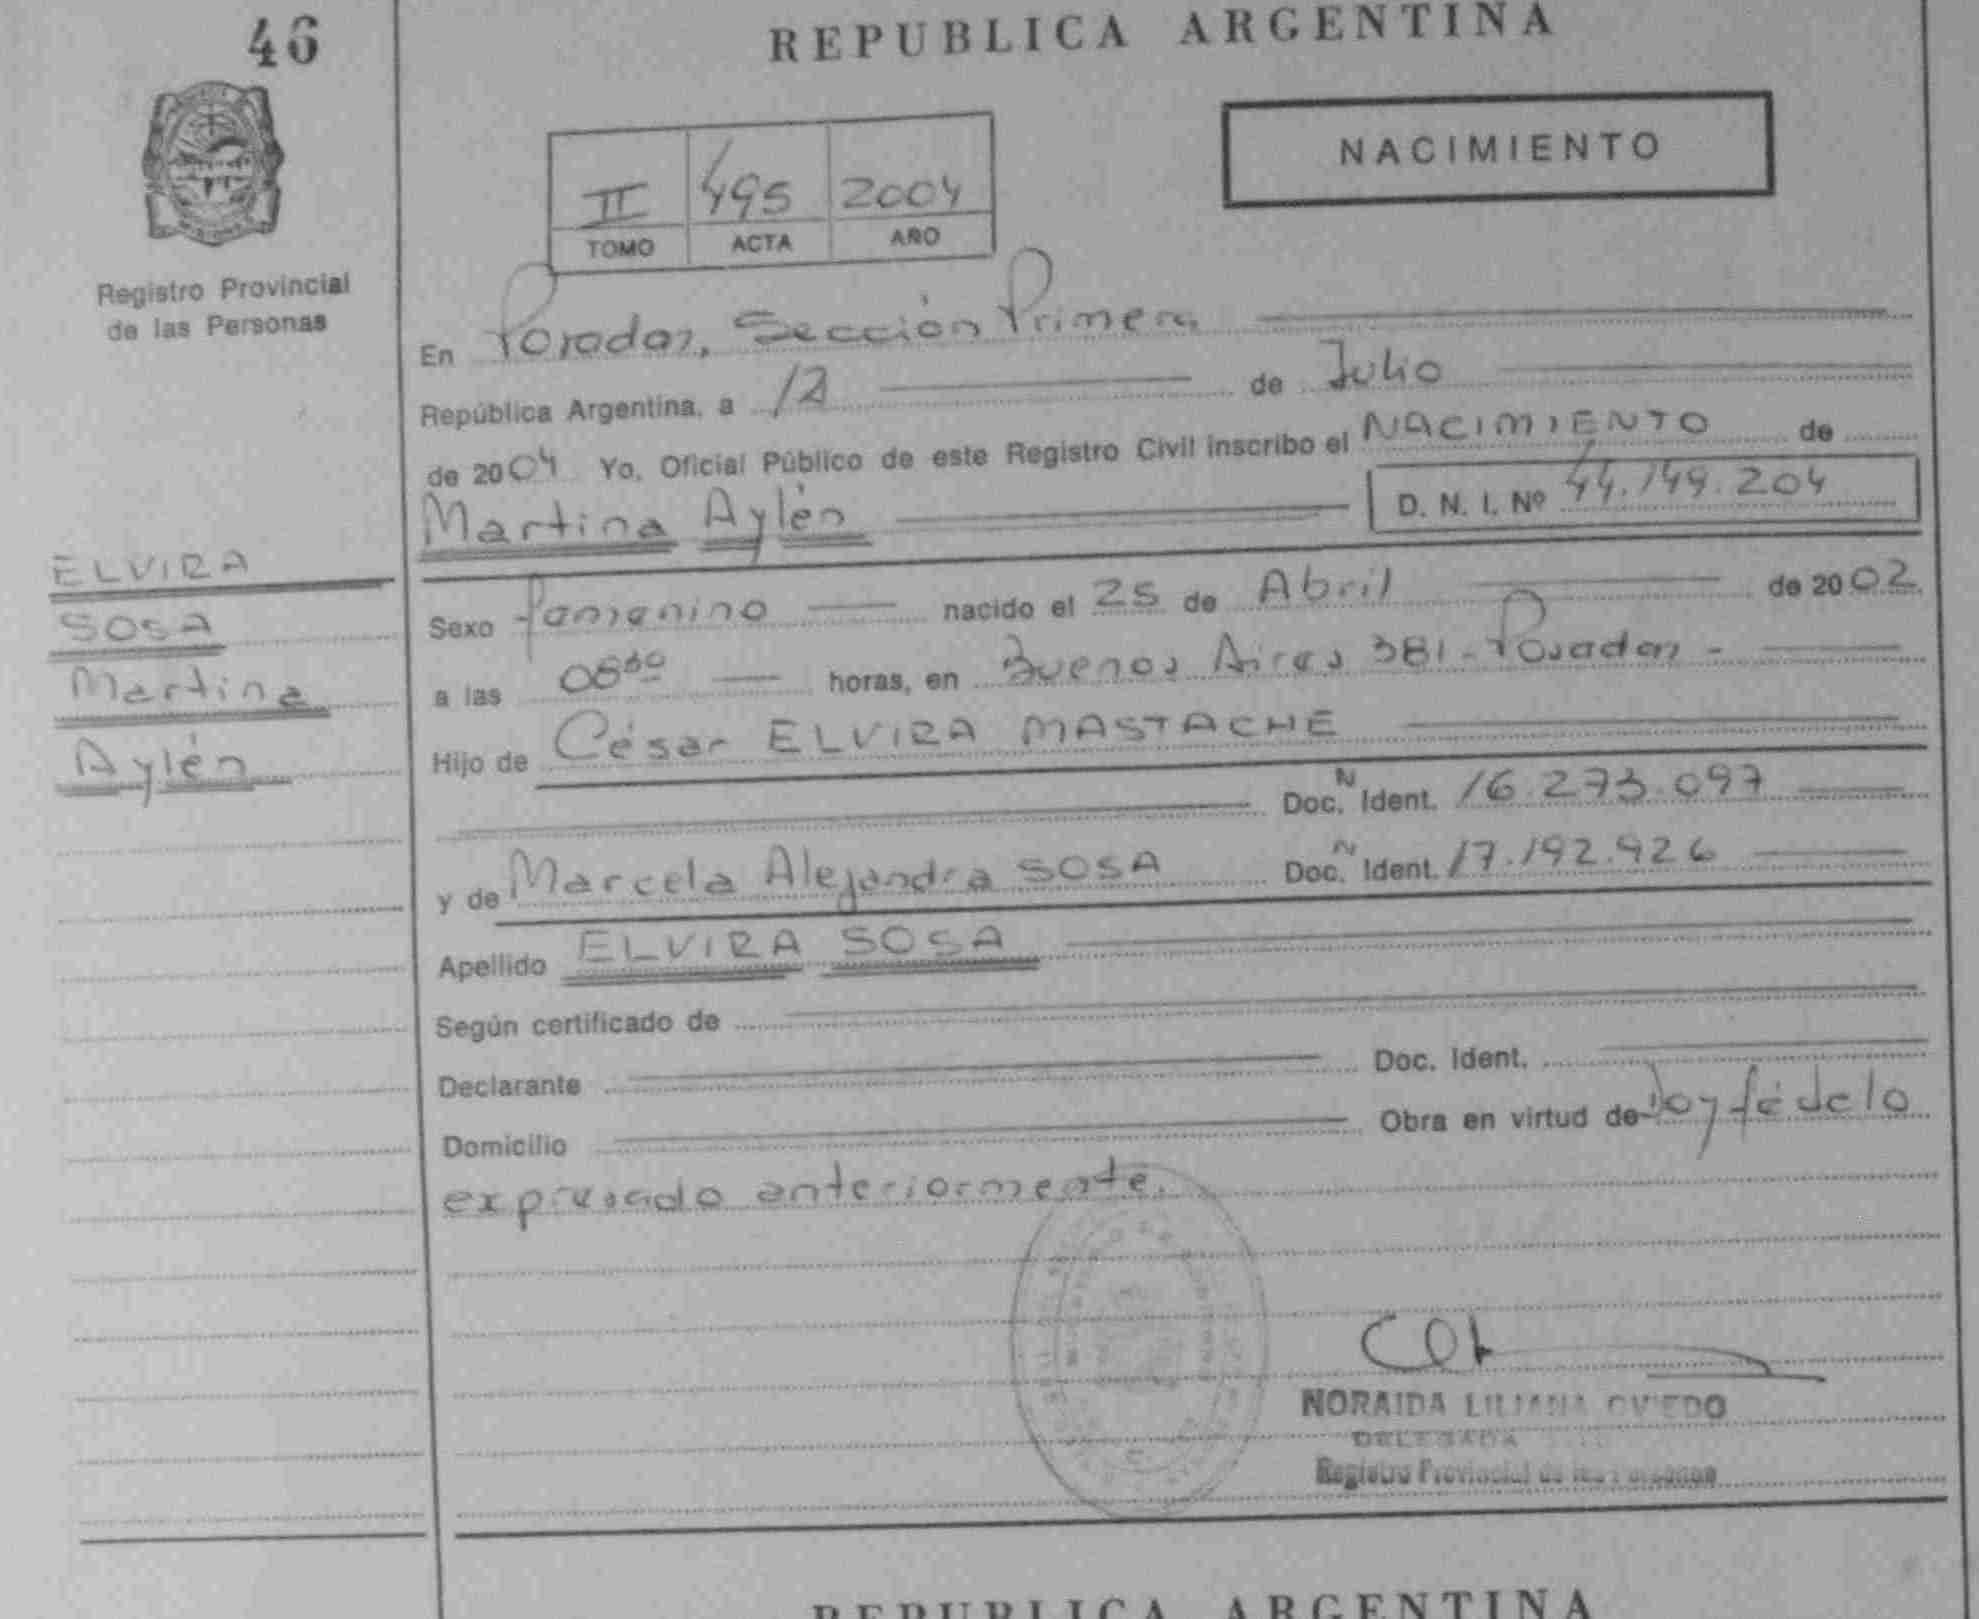 46
REPUBLICA ARGENTINA
NACIMIENTO
II 495 2004
TOMO ACTA AÑO
Registro Provincial
de las Personas
En Posadas, Sección Primera
República Argentina, a 12 de Julio
de 2004 Yo, Oficial Público de este Registro Civil inscribo el NACIMIENTO de
Martina Aylén D. N. I. Nº 44.149.204
ELVIRA
SOSA
Martina
Aylén
Sexo femenino nacido el 25 de Abril de 2002
a las 08 30 horas, en Buenos Aires 381 - Posadas -
Hijo de César ELVIRA MASTACHE
Doc. N Ident. 16.273.097
y de Marcela Alejandra SOSA Doc. N Ident. 17.192.926
Apellido ELVIRA SOSA
Según certificado de
Declarante Doc. Ident.
Domicilio Obra en virtud de Doy fé de lo
expresado anteriormente.
NORAIDA LILIANA OVIEDO
DELEGADA
Registro Provincial de las Personas
REPUBLICA ARGENTINA